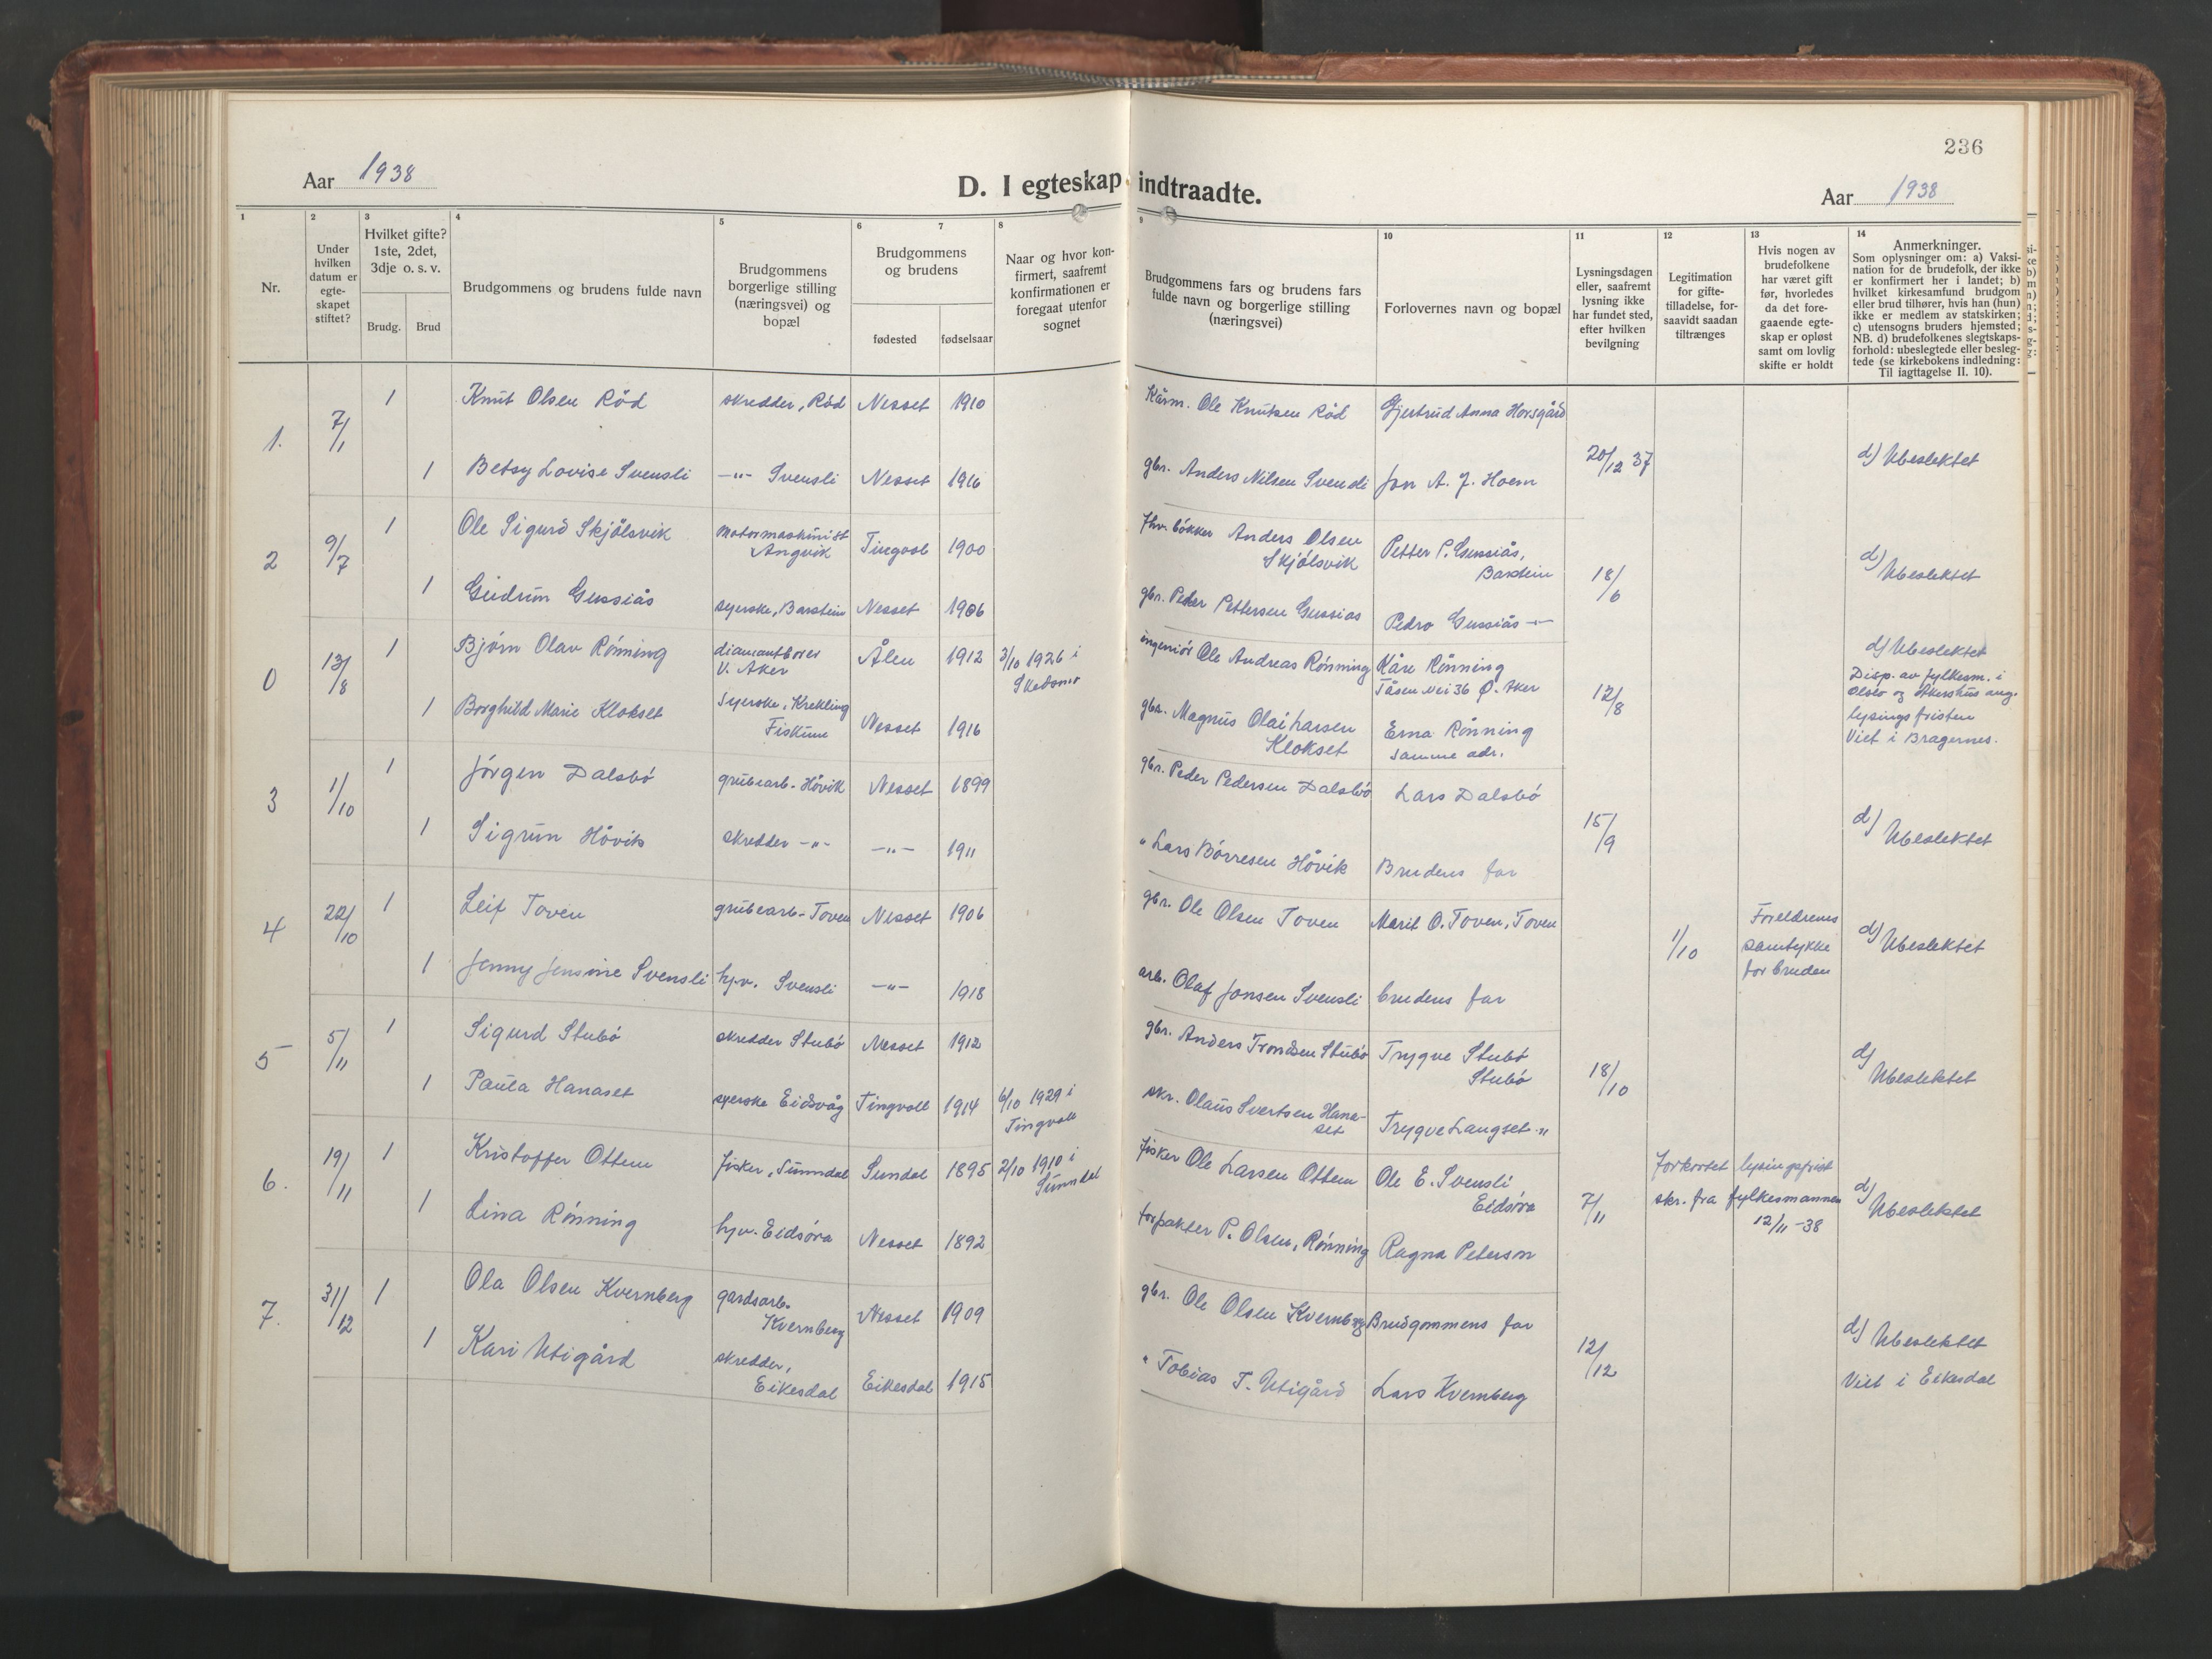 236
Aar 1938
D. I egteskap indtraadte.
Aar 1938
1
2
3
4
5
6
7
8
9
10
11
12
13
14
Nr.
Under
hvilken
datum er
egte-
skapet
stiftet?
Hvilket gifte?
1ste, 2det,
3dje o. s. v.
Brudg. Brud
Brudgommens og brudens fulde navn
Brudgommens
borgerlige stilling
(næringsvei) og
bopæl
Brudgommens
og brudens
fødested fødselsaar
Naar og hvor kon-
firmert, saafremt
konfirmationen er
foregaat utenfor
sognet
Brudgommens fars og brudens fars
fulde navn og borgerlige stilling
(næringsvei)
Forlovernes navn og bopæl
Lysningsdagen
eller, saafremt
lysning ikke
har fundet sted,
efter hvilken
bevilgning
Legitimation
for gifte-
tilladelse, for-
saavidt saadan
tiltrænges
Hvis nogen av
brudefolkene
har været gift
før, hvorledes
da det fore-
gaaende egte-
skap er opløst
samt om lovlig
skifte er holdt
Anmerkninger.
Som oplysninger om: a) Vaksi-
nation for de brudefolk, der ikke
er konfirmert her i landet; b)
hvilket kirkesamfund brudgom
eller brud tilhører, hvis han (hun)
ikke er medlem av statskirken;
c) utensogns bruders hjemsted;
NB. d) brudefolkenes slegtskaps-
forhold: ubeslegtede eller besleg-
tede (se kirkebokens indledning:
Til iagttagelse II. 10).
1. 7/1
1 Knut Olsen Röd skredder, Röd Nesset 1910 Kårm. Ole Knutsen Röd Gjertrud Anna Horsgård
20/12 37 d) Ubeslektet
1 Betsy Lovise Svensli -"- Svensli Nesset 1916 gbr. Anders Nilsen Svensli Jon A. J. Hoem
2 9/7
1 Ole Sigurd Skjölsvik motormaskinist
Angvik Tingvoll 1900 fhv. bökker Anders Olsen
Skjölsvik Petter P. Gussiås,
Barstein 18/6 d) Ubeslektet
1 Gudrun Gussiås syerske, Barstein Nesset 1906 gbr. Peder Pettersen Gussiås Pedro Gussiås -"-
0 13/8
1 Björn Olav Rönning diamantborer
V. Aker Ålen 1912 3/10 1926 i
Skedsmo ingeniör Ole Andreas Rönning Kåre Rönning
Tåsen vei 36 Ö. Aker 12/8 d) Ubeslektet
Disp. av fylkesm. i
Oslo og Akershus ang.
lysingsfristen
Viet i Bragernes.
1 Borghild Marie Klokset Syerske, Krekling
Fiskum Nesset 1916 gbr. Magnus Olai Larsen
Klokset Erna Rönning
samme adr.
3 1/10
1 Jörgen Dalsbö grubearb. Hövik Nesset 1899 gbr. Peder Pedersen Dalsbö Lars Dalsbö
15/9 d) Ubeslektet
1 Sigrun Hövik skredder -"- -"- 1911 " Lars Börresen Hövik Brudens far
4 22/10
1 Leif Toven grubearb. Toven Nesset 1906 gbr. Ole Olsen Toven Marit O. Toven, Toven
1/10 Foreldrenes
samtykke
for bruden d) Ubeslektet
1 Jenny Jensine Svensli hjv. Svensli -"- 1918 arb. Olaf Jonsen Svensli brudens far
5 5/11
1 Sigurd Stubö skredder Stubö Nesset 1912 gbr. Anders Trondsen Stubö Trygve Stubö
Stubö 18/10 d) Ubeslektet
1 Paula Hanaset syerske Eidsvåg Tingvoll 1914 6/10 1929 i
Tingvoll skr. Olaus Sivertsen Hana-
set Trygve Langset "
6. 19/11
1 Kristoffer Ottem fisker, Sunndal Sundal 1895 2/10 1910 i
Sunndal fisker Ole Larsen Ottem Ole E. Svensli
Eidsöra 7/11 forkortet lysingsfrist
skr. fra fylkesmannen
12/11 -38 d) Ubeslektet
1 Lina Rönning hjv. Eidsöra Nesset 1892 forpakter P. Olsen, Rönning Ragna Peterson
7. 31/12
1 Ola Olsen Kvernberg gardsarb.
Kvernberg Nesset 1909 gbr. Ole Olsen Kvernberg Brudgommens far
12/12 d) Ubeslektet
Viet i Eikesdal
1 Kari Utigård skredder,
Eikesdal Eikesdal 1915 " Tobias T. Utigård Lars Kvernberg